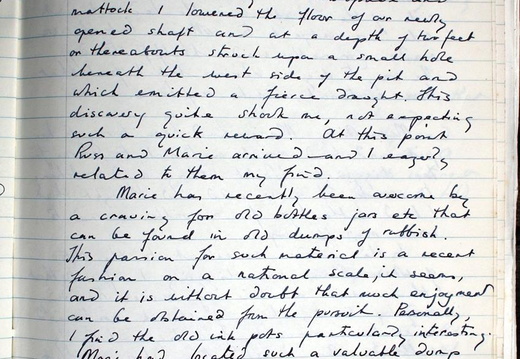 mattock I lowered the floor of our newly
opened shaft and at a depth of two feet
or thereabouts struck upon a small hole
beneath the west side of the pit and
which emitted a fierce draught. This
discovery quite shook me, not expecting
such a quick reward. At this point
Russ and Marie arrived and I eagerly
related to them my find.
Marie has recently been overcome by
a craving for old bottles jars etc that
can be found in old dumps of rubbish.
This passion for such material is a recent
fashion on a national scale, it seems,
and it is without doubt that much enjoyment
can be obtained from the pursuit. Personally,
I find the old ink pots particularly interesting.
Marie had located such a valuable dump